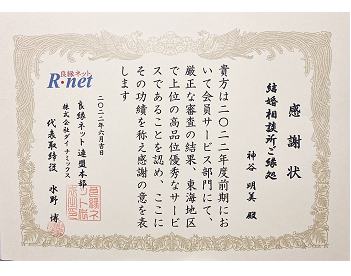 良縁ネット
R・net
感謝状
結婚相談所ご縁処
神谷 明美 殿
貴方は二〇二二年度前期にお
いて会員サービス部門にて、
厳正な審査の結果、東海地区
で上位の高品位優秀なサービ
スであることを認め、ここに
その功績を称え感謝の意を表
します
二〇二二年六月吉日
良縁ネット連盟本部
株式会社ダイナミックス
代表取締役 水野 博